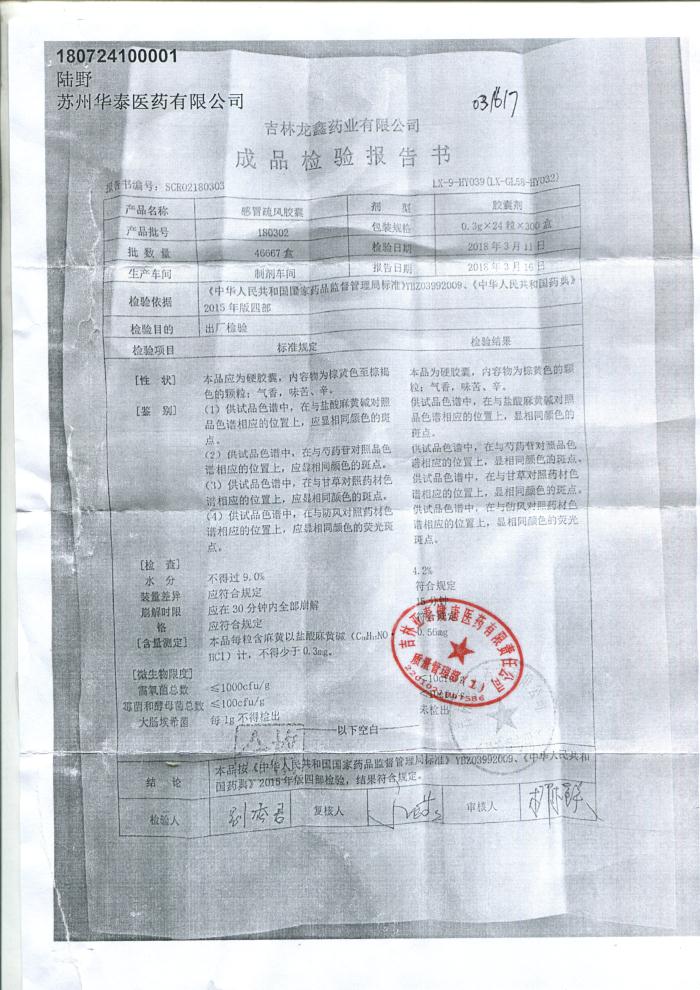 180724100001
陆野
苏州华泰医药有限公司
031617
吉林龙鑫药业有限公司
成品检验报告书
报告书编号：SCR02180303 LX-9-HY039(LX-GL58-HY032)
产品名称 感冒疏风胶囊 剂 型 胶囊剂
产品批号 180302 包装规格 0.3g×24粒×300盒
批数量 46667盒 检验日期 2018年3月11日
生产车间 制剂车间 报告日期 2018年3月16日
检验依据 《中华人民共和国国家药品监督管理局标准》YBZ03992009、《中华人民共和国药典》
2015年版四部
检验目的 出厂检验
检验项目 标准规定 检验结果
[性 状] 本品应为硬胶囊，内容物为棕黄色至棕褐 本品为硬胶囊，内容物为棕黄色的颗
色的颗粒；气香，味苦、辛。 粒；气香，味苦、辛。
[鉴 别] (1) 供试品色谱中，在与盐酸麻黄碱对照 供试品色谱中，在与盐酸麻黄碱对照
品色谱相应的位置上，应显相同颜色的斑 品色谱相应的位置上，显相同颜色的
点。 斑点。
(2) 供试品色谱中，在与芍药苷对照品色 供试品色谱中，在与芍药苷对照品色
谱相应的位置上，应显相同颜色的斑点。 谱相应的位置上，显相同颜色的斑点。
(3) 供试品色谱中，在与甘草对照药材色 供试品色谱中，在与甘草对照药材色
谱相应的位置上，应显相同颜色的斑点。 谱相应的位置上，显相同颜色的斑点。
(4) 供试品色谱中，在与防风对照药材色 供试品色谱中，在与防风对照药材色
谱相应的位置上，应显相同颜色的荧光斑 谱相应的位置上，显相同颜色的荧光
点。 斑点。
[检 查]
水 分 不得过9.0% 4.2%
装量差异 应符合规定 符合规定
崩解时限 应在30分钟内全部崩解 15分钟
铬 应符合规定 符合规定
[含量测定] 本品每粒含麻黄以盐酸麻黄碱（C₁₀H₁₅NO· 0.56mg
HCl）计，不得少于0.3mg。
[微生物限度]
需氧菌总数 ≤1000cfu/g
霉菌和酵母菌总数 ≤100cfu/g <10cfu/g
大肠埃希菌 每1g不得检出 未检出
以下空白
结 论 本品按《中华人民共和国国家药品监督管理局标准》YBZ03992009、《中华人民共和
国药典》2015年版四部检验，结果符合规定。
检验人 复核人 审核人
吉林亚泰健惠医药有限责任公司
质量管理部(1)